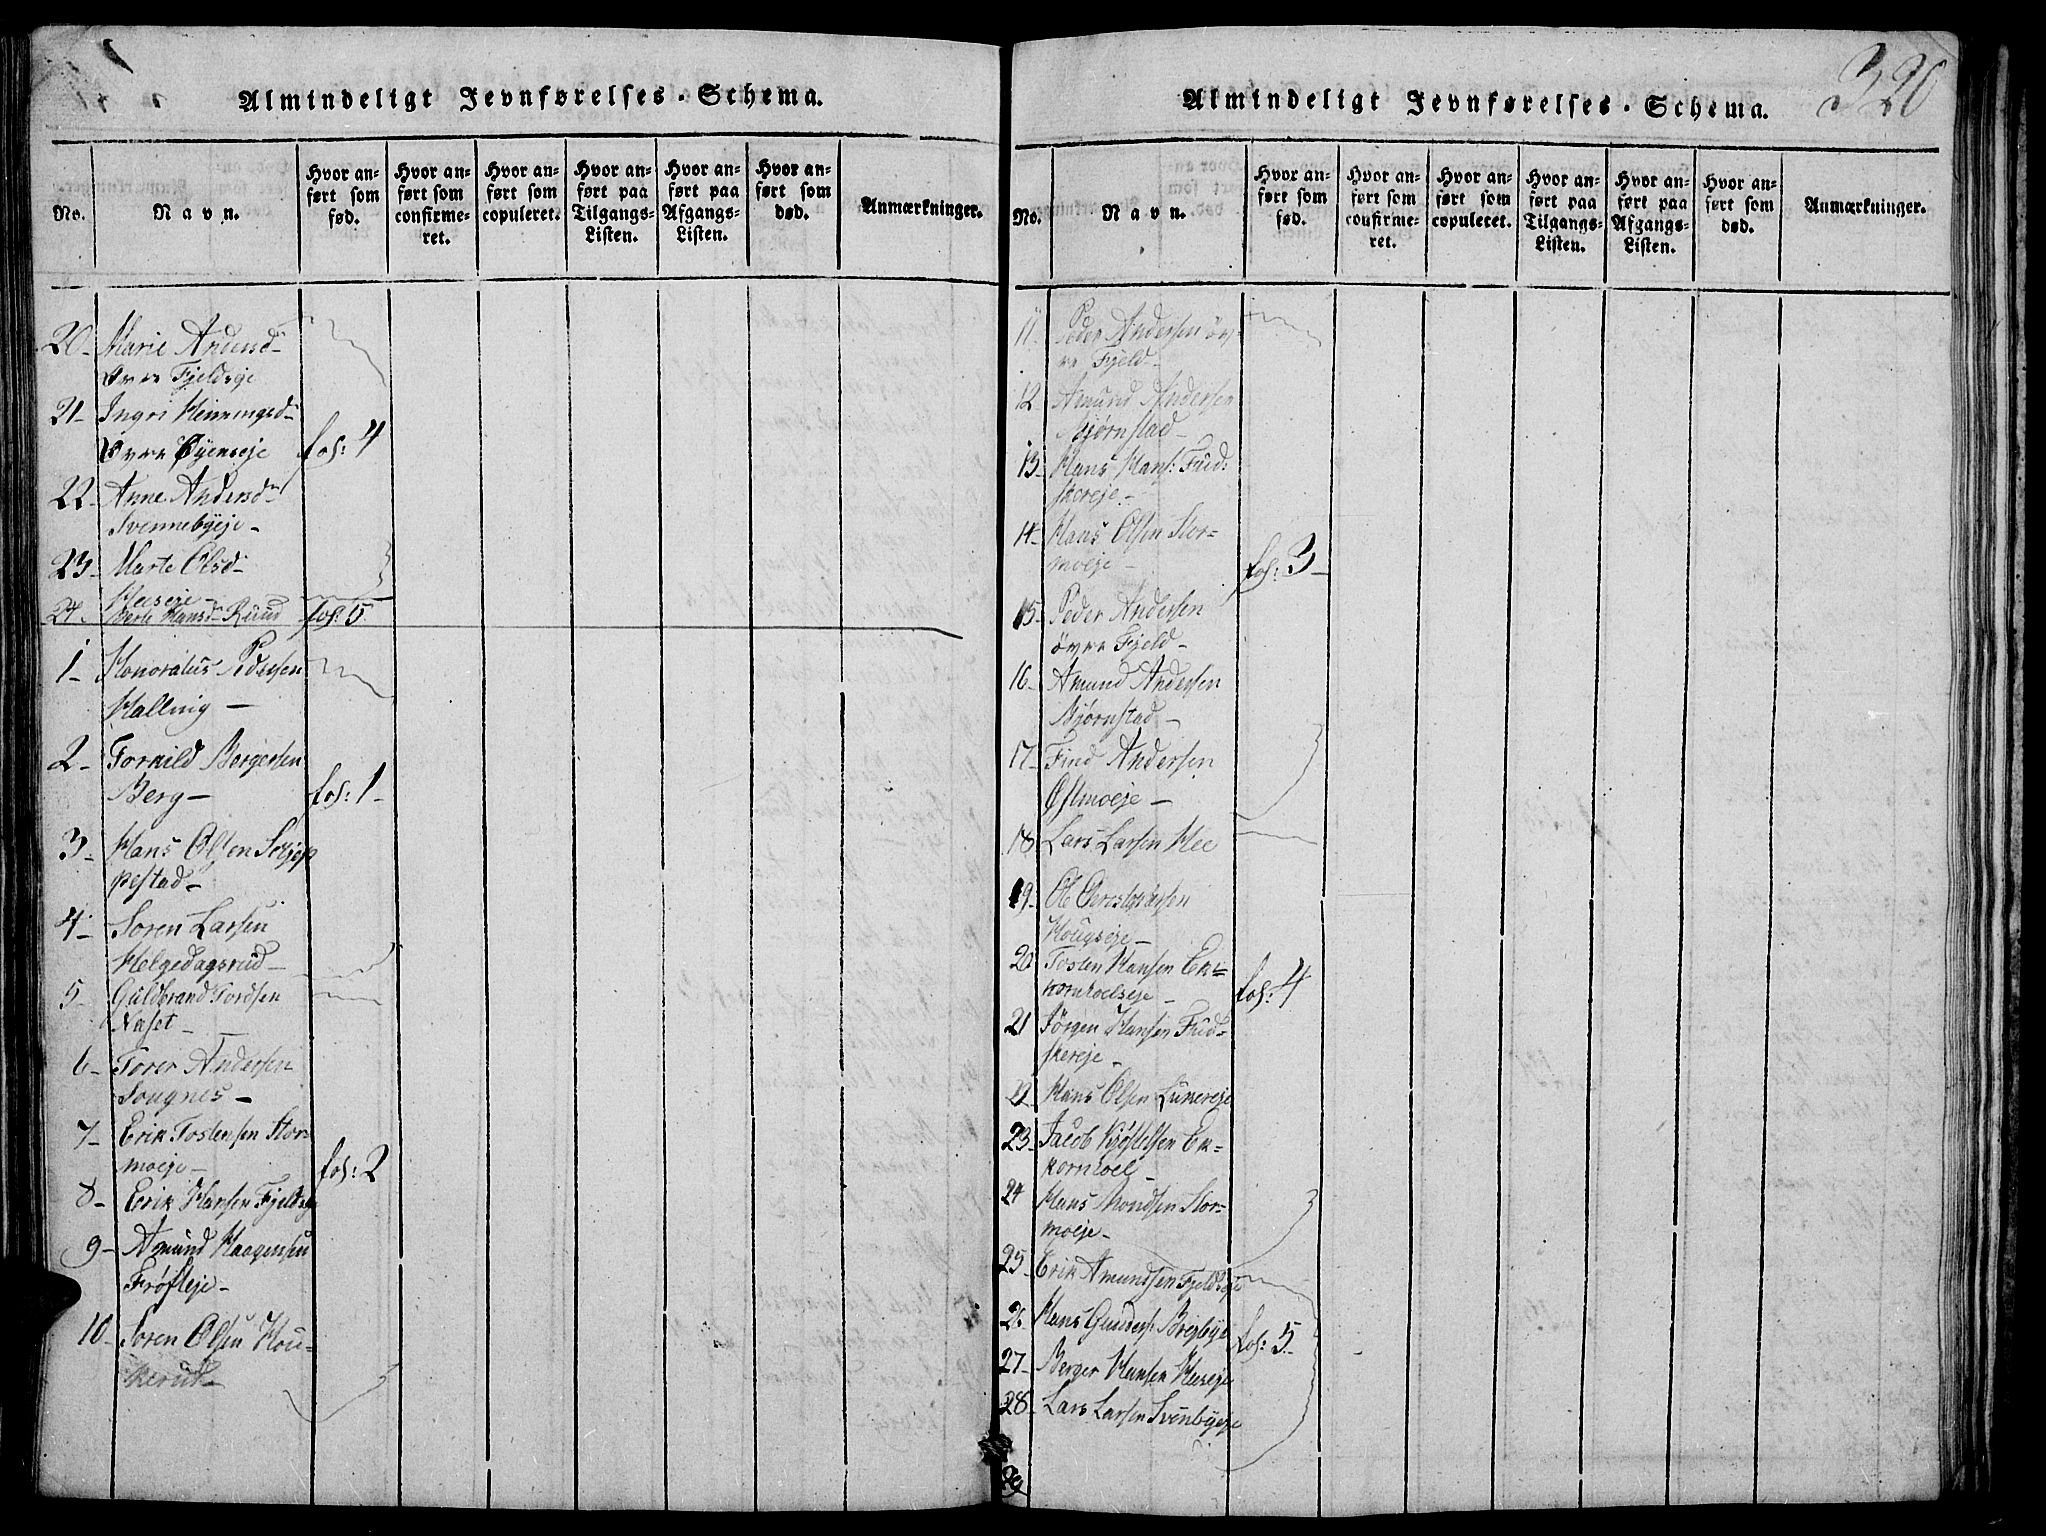 Almindeligt Jevnførelses-Schema.
No.
Navn.
Hvor an-
ført som
fød.
Hvor an-
ført som
confirme-
ret.
Hvor an-
ført som
copuleret.
Hvor an-
ført paa
Tilgangs-
Listen.
Hvor an-
ført paa
Afgangs-
Listen.
Hvor an-
ført som
død.
Anmærkninger.
20- Marie Andersd-
Øvre Fjeldseje
21- Ingri Hemmingsd-
Øvre Øyenseje fol: 4
22- Anne Andersd-
Svennebyeje-
23- Marte Olsd-
Heeseje-
24- Berte Hansd- Ruud fol: 5
1- Honoratus Pedersen
Halling-
2- Torkild Bergersen
Berg- fol: 1-
3- Hans Olsen Skjep
pestad-
4- Soren Larsen
Helgedagsrud-
5- Guldbrand Tordsen
Naset-
6- Torer Andersen
Sougnes-
7- Erik Tostensen Stor-
moeje- fol: 2
8- Erik Hansen Fjeldseje
9- Amund Haagensen
Frøsleje-
10- Soren Olsen Hou-
kerud-
320
Almindeligt Jevnførelses-Schema.
No.
Navn.
Hvor an-
ført som
fød.
Hvor an-
ført som
confirme-
ret.
Hvor an-
ført som
copuleret.
Hvor an-
ført paa
Tilgangs-
Listen.
Hvor an-
ført paa
Afgangs-
Listen.
Hvor an-
ført som
død.
Anmærkninger.
11- Peder Andersen öv-
re Fjeld-
12- Amund Andersen
Bjørnstad-
13- Hans Hans: Fud:
skereje-
14- Hans Olsen Stor-
moeje- fol: 3-
15- Peder Andersen
övre Fjeld-
16- Amund Andersen
Bjørnstad-
17- Find Andersen
Østmoeje-
18 Lars Larsen Hee
19- Ole Christophersen
Hougseje-
20 Tosten Hansen Ek-
kornhoelseje- fol: 4
21 Jörgen Hansen Fud-
skereje-
22 Hans Olsen Lunereje
23- Jacob Kjöstelsen Ek-
kornhoel-
24 Hans Mondsen Stor-
moeje-
25- Erik Amundsen Fjeldseje
26- Hans Gunders: Bregbye fol: 5-
27- Berger Hansen Heeseje
28- Lars Larsen Svenbyeje